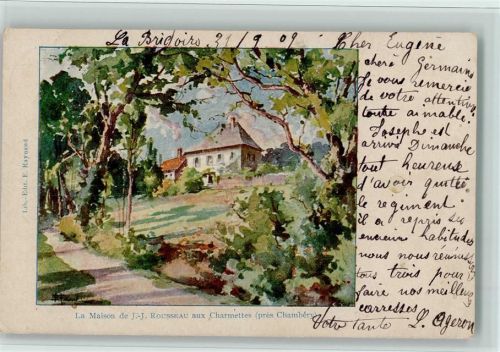 La Bridoire 31/9 09 Cher Eugène
chère Germaine
Je vous remercie
de votre attention
toute aimable.
Josephe est
arrivé Dimanche
tout heureuse
d'avoir quitté
le regiment
il a repris ses
ancien habitudes
nous nous réunissons
tous trois pour
faire nos meilleurs
carresses
Votre tante L. Ageron
Lib.-Edit. F. Raynaud
La Maison de J.-J. ROUSSEAU aux Charmettes (près Chambéry)